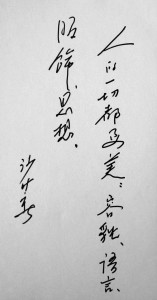 人的一切都美：容貌、语言、
服饰、思想。
沙叶新